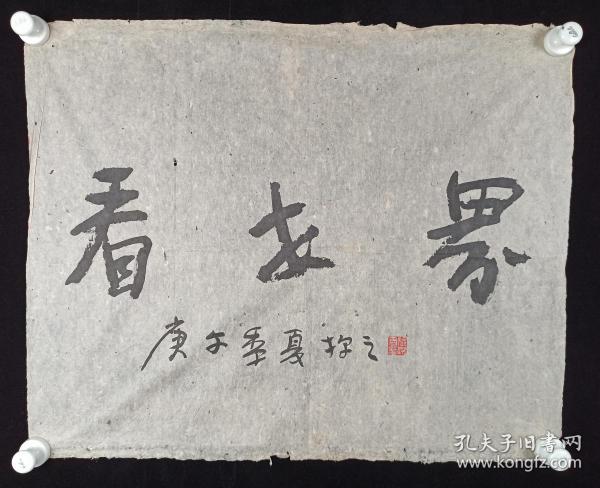 看世界
庚午季夏 之
孔夫子旧书网
www.kongfz.com